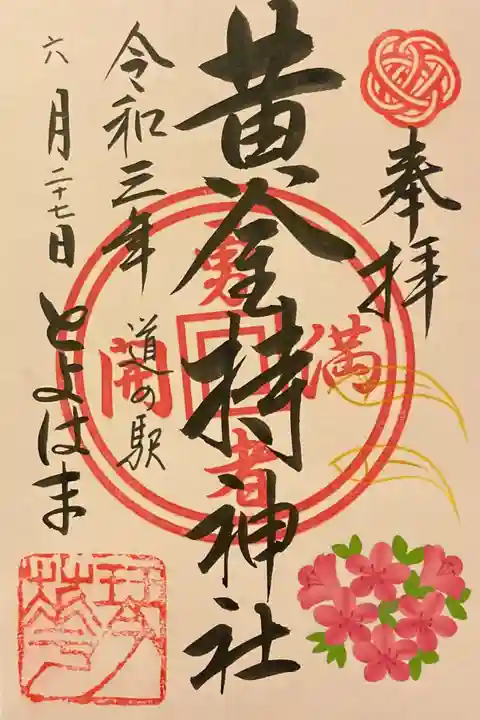 奉拝
黄金持神社
令和三年
六月二十七日
道の駅
とよはま
満
開
者